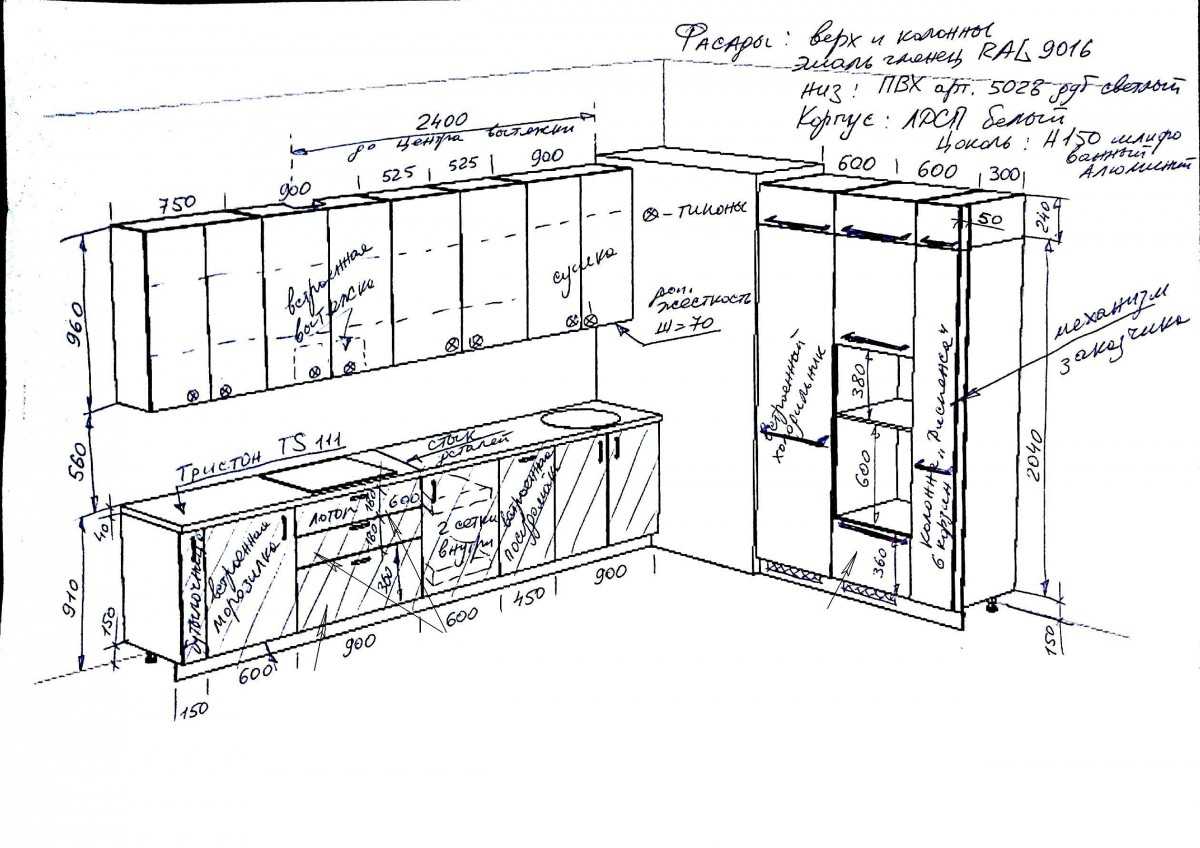 Фасады: верх и колонны
эмаль глянец RAL 9016
низ: ПВХ арт. 5028 дуб светлый
Корпус: ЛДСП белый
Цоколь: H150 шлифо
ванный
Алюминий
2400
до центра вытяжки
750
900
525
525
900
600
600
300
50
240
⊗-типоны
встроенная
вытяжка
сушилка
доп.
жесткость
ш=70
механизм
заказчика
960
560
40
910
150
Тристон TS 111
стык
деталей
встроенный
холодильник
380
600
360
Колонна "Диспенса"
6 корзин
2040
150
бутылочница
встроенная
морозилка
лоток
180
600
180
360
2 сетки
внутри
встроенная
посудомойка
150
600
900
600
450
900